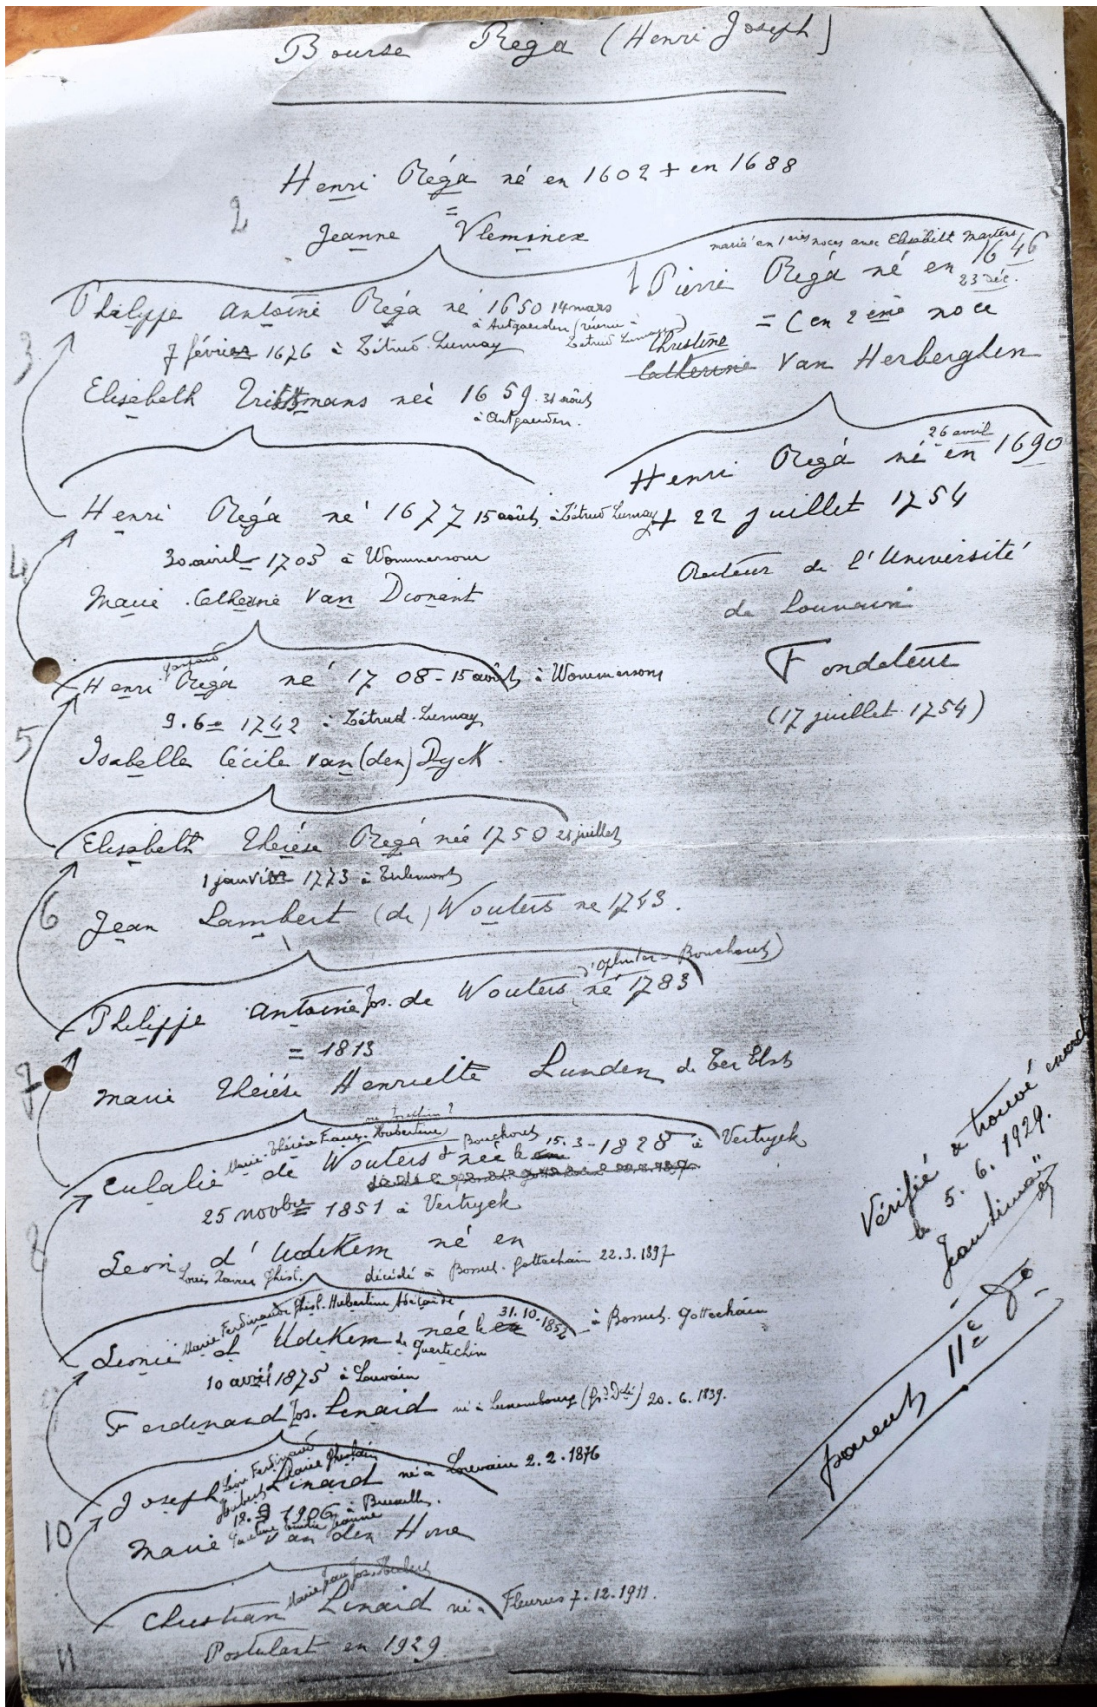 Bourse Rega (Henri Joseph)
Henri Réga né en 1602 + en 1688
2
=
Jeanne Vleminex
Philippe Antoine Réga né 1650 14 mars
à Autgaerden (réuni à Zétrud Lumay)
3
7 février 1676 à Zétrud-Lumay
Elisabeth né 1659. 31 août
à Autgaerden.
marié en 1ères noces avec Elisabeth Martens
Pierre Régá né en 1646
23 déc.
= (en 2ème noce
Christine
Catherine Van Herberghen
Henri Régá né en 1690
26 avril
+ 22 juillet 1754
Recteur de l'Université
de Louvain
Fondateur
(17 juillet 1754)
Henri Réga né 1677 15 août à Zétrud Lumay
4
30 avril = 1705 à Wommersom
Marie Catherine Van Dionant
Henri Régá né 1708 - 15 août à Wommersom
5
9.6 = 1742 à Zétrud-Lumay
Isabelle Cécile Van (den) Dyck
Elisabeth Thérèse Régá née 1750 21 juillet
1 janvier 1773 à Tirlemont
6
Jean Lambert (de) Wouters né 1743.
d'Oplinter-Bouchout)
Philippe Antoine Jos. de Wouters né 1783
7
= 1813
Marie Thérèse Henriette Lunden de Ter Elst
Marie-Thérèse Franç. Hubertine
Eulalie de Wouters d. Bouchout née le 15.3-1828 à Vertryck
25 novbre = 1851 à Vertryck
8
Léon d'Udekem né en
Louis Xavier Ghisl. décédé à Bossut-Gottechain 22.3.1897
Marie Ferdinande Ghisl. Hubertine Adélaïde
Léonie d'Udekem de Guertechin née le 31.10.1852 à Bossut-Gottechain
10 avril 1875 à Louvain
Ferdinand Jos. Linard né à Luxembourg (Gd Dché) 20.6.1839.
Léon Ferdinand
Hubert Marie Ghislain
Joseph Linard né à Louvain 2.2.1876
10
1906 à Bruxelles.
Marie Van den Hove
Marie Jean Jos. Hubert
Christian Linard né à Fleurus 7.12.1911.
Postulant en 1929.
11
Vérifié & trouvé exact
le 5.6.1929.
parent 11e d°